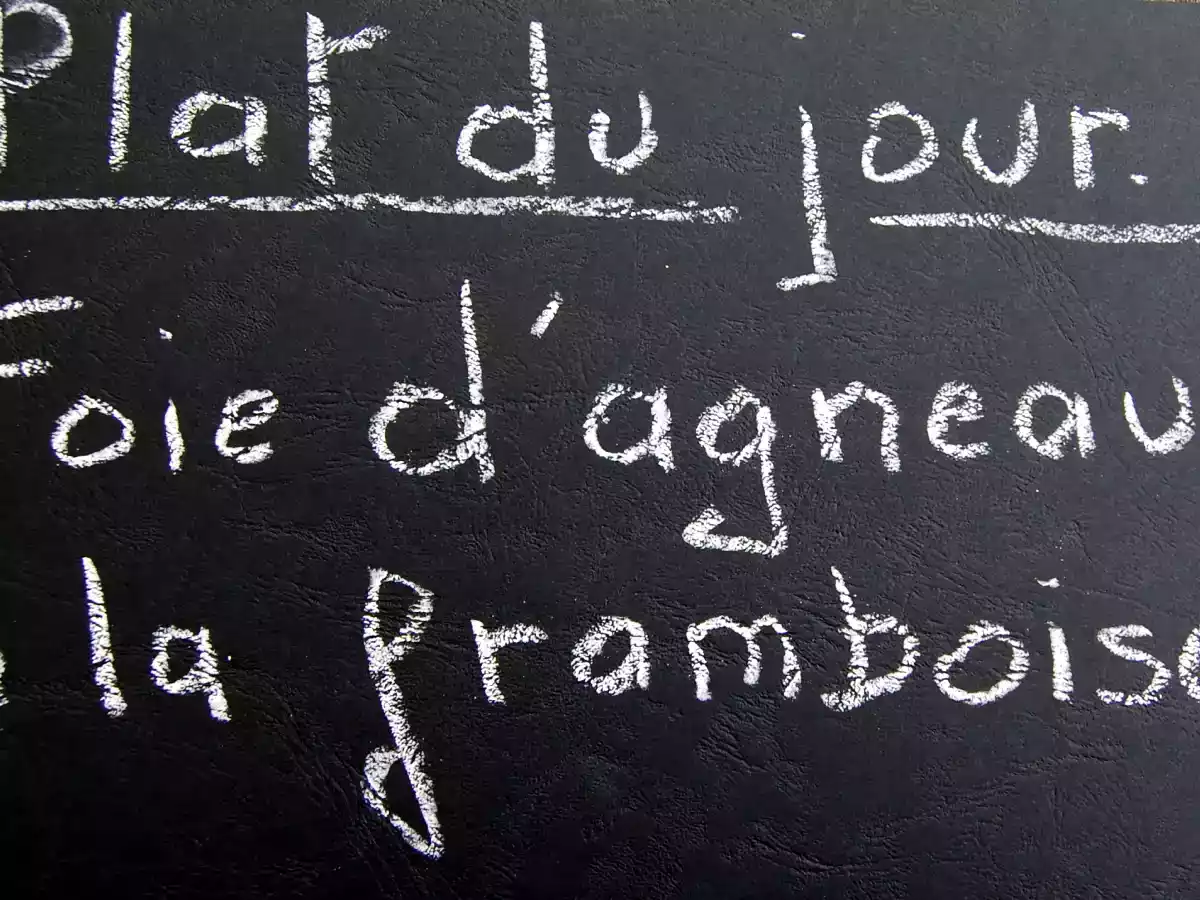 Plat du jour.
Foie d'agneau
à la framboise